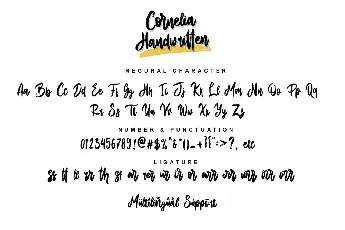 Cornelia
Handwritten
REGURAL CHARACTER
Aa Bb Cc Dd Ee Ff Gg Hh Ii Jj Kk Ll Mm Nn Oo Pp Qq
Rr Ss Tt Uu Vv Ww Xx Yy Zz
NUMBER & PUNCTUATION
0123456789!@#$%^&*()_-+{}":>?, etc
LIGATURE
Multilingual Support